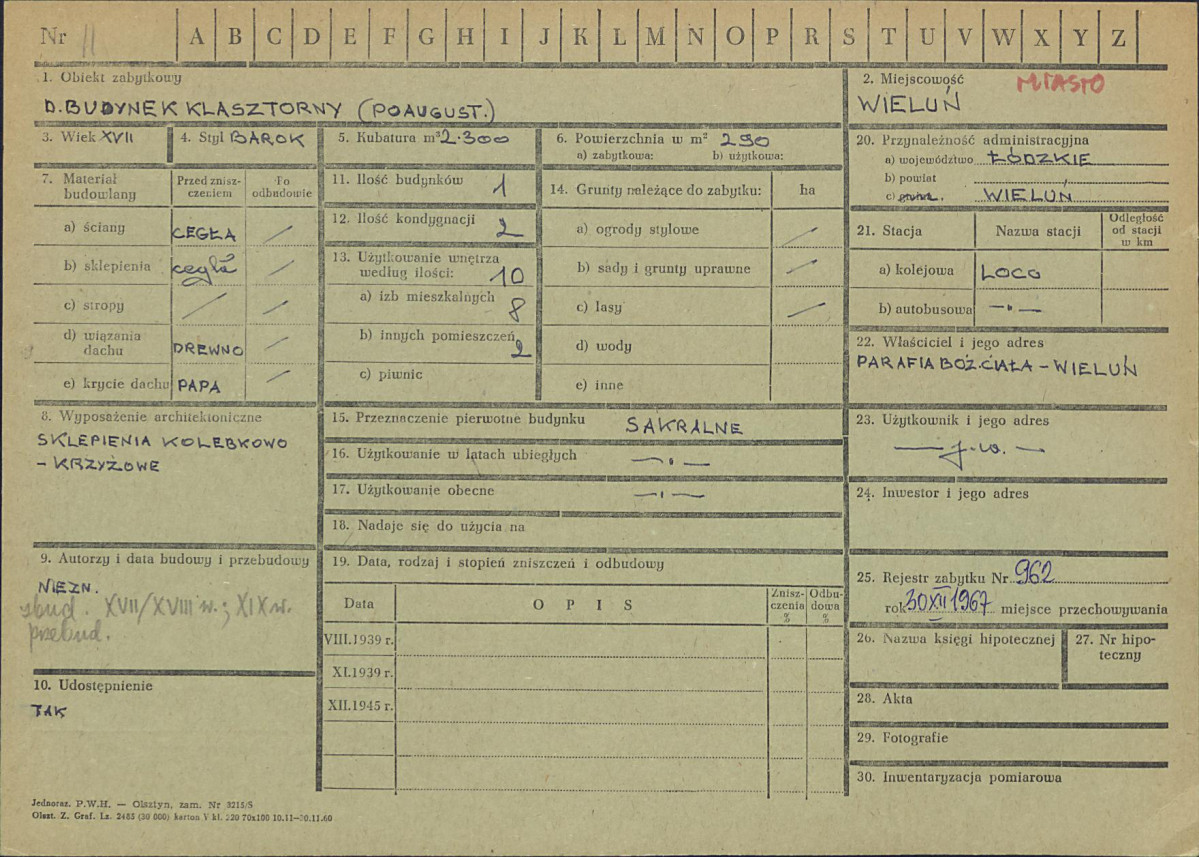 Nr 11 A B C D E F G H I J K L M N O P R S T U V W X Y Z
1. Obiekt zabytkowy
D. BUDYNEK KLASZTORNY (POAUGUST.)
2. Miejscowość MIASTO
WIELUŃ
3. Wiek XVII
4. Styl BAROK
5. Kubatura m³ 2.300
6. Powierzchnia w m² 290
a) zabytkowa: b) użytkowa:
7. Materiał budowlany
Przed zniszczeniem
Po odbudowie
a) ściany CEGŁA
b) sklepienia cegła
c) stropy
d) wiązania dachu DREWNO
e) krycie dachu PAPA
8. Wyposażenie architektoniczne
SKLEPIENIA KOLEBKOWO
- KRZYŻOWE
9. Autorzy i data budowy i przebudowy
NIEZN.
zbud. XVII/XVIII w.; XIX w.
przebud.
10. Udostępnienie
TAK
11. Ilość budynków 1
12. Ilość kondygnacji 2
13. Użytkowanie wnętrza
według ilości: 10
a) izb mieszkalnych 8
b) innych pomieszczeń 2
c) piwnic
14. Grunty należące do zabytku: ha
a) ogrody stylowe
b) sady i grunty uprawne
c) lasy
d) wody
e) inne
15. Przeznaczenie pierwotne budynku SAKRALNE
16. Użytkowanie w latach ubiegłych —"—
17. Użytkowanie obecne —"—
18. Nadaje się do użycia na
19. Data, rodzaj i stopień zniszczeń i odbudowy
Data OPIS Zniszczenia % Odbudowa %
VIII.1939 r.
XI.1939 r.
XII.1945 r.
20. Przynależność administracyjna
a) województwo ŁÓDZKIE
b) powiat
c) gmina. WIELUŃ
21. Stacja Nazwa stacji Odległość od stacji w km
a) kolejowa LOCO
b) autobusowa —"—
22. Właściciel i jego adres
PARAFIA BOŻ. CIAŁA - WIELUŃ
23. Użytkownik i jego adres
— j.w. —
24. Inwestor i jego adres
25. Rejestr zabytku Nr 962
rok 30 XII 1967 miejsce przechowywania
26. Nazwa księgi hipotecznej
27. Nr hipoteczny
28. Akta
29. Fotografie
30. Inwentaryzacja pomiarowa
Jednoraz. P.W.H. — Olsztyn, zam. Nr 3215/S
Olszt. Z. Graf. Lz. 2485 (30 000) karton V kl. 220 70x100 10.11—30.11.60